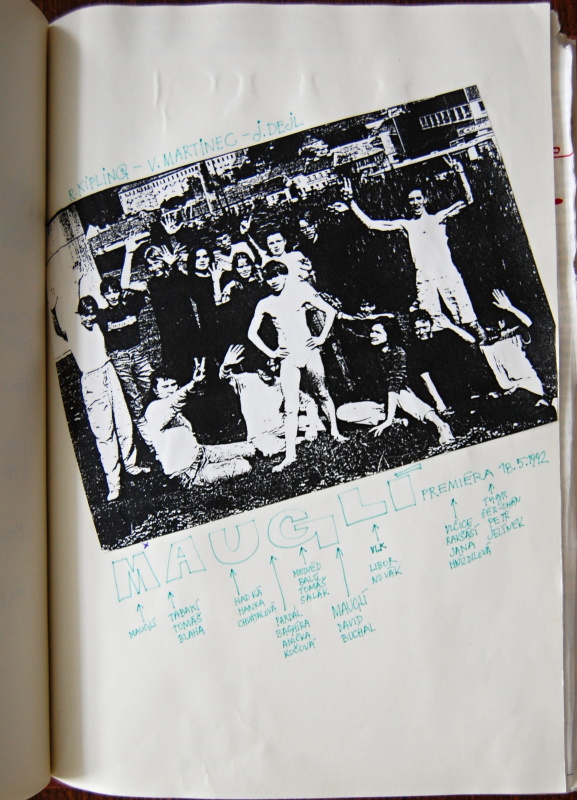 R. KIPLING - V. MARTINEC - J. DEJL
MAUGLÍ
PREMIÉRA 18.5.1992
MAUGLÍ
TABAKI
TOMÁŠ
BLAHA
HAD KÁ
HANKA
CHVÁTALOVÁ
PARDÁL
BAGHÍRA
ANIČKA
KOČOVÁ
MEDVĚD
BALÚ
TOMÁŠ
SALÁK
MAUGLÍ
DAVID
BUCHAL
VLK
LIBOR
NOVÁK
VLČICE
RAKŠASÍ
JANA
HNIZDILOVÁ
TYGR
PETR
JELÍNEK